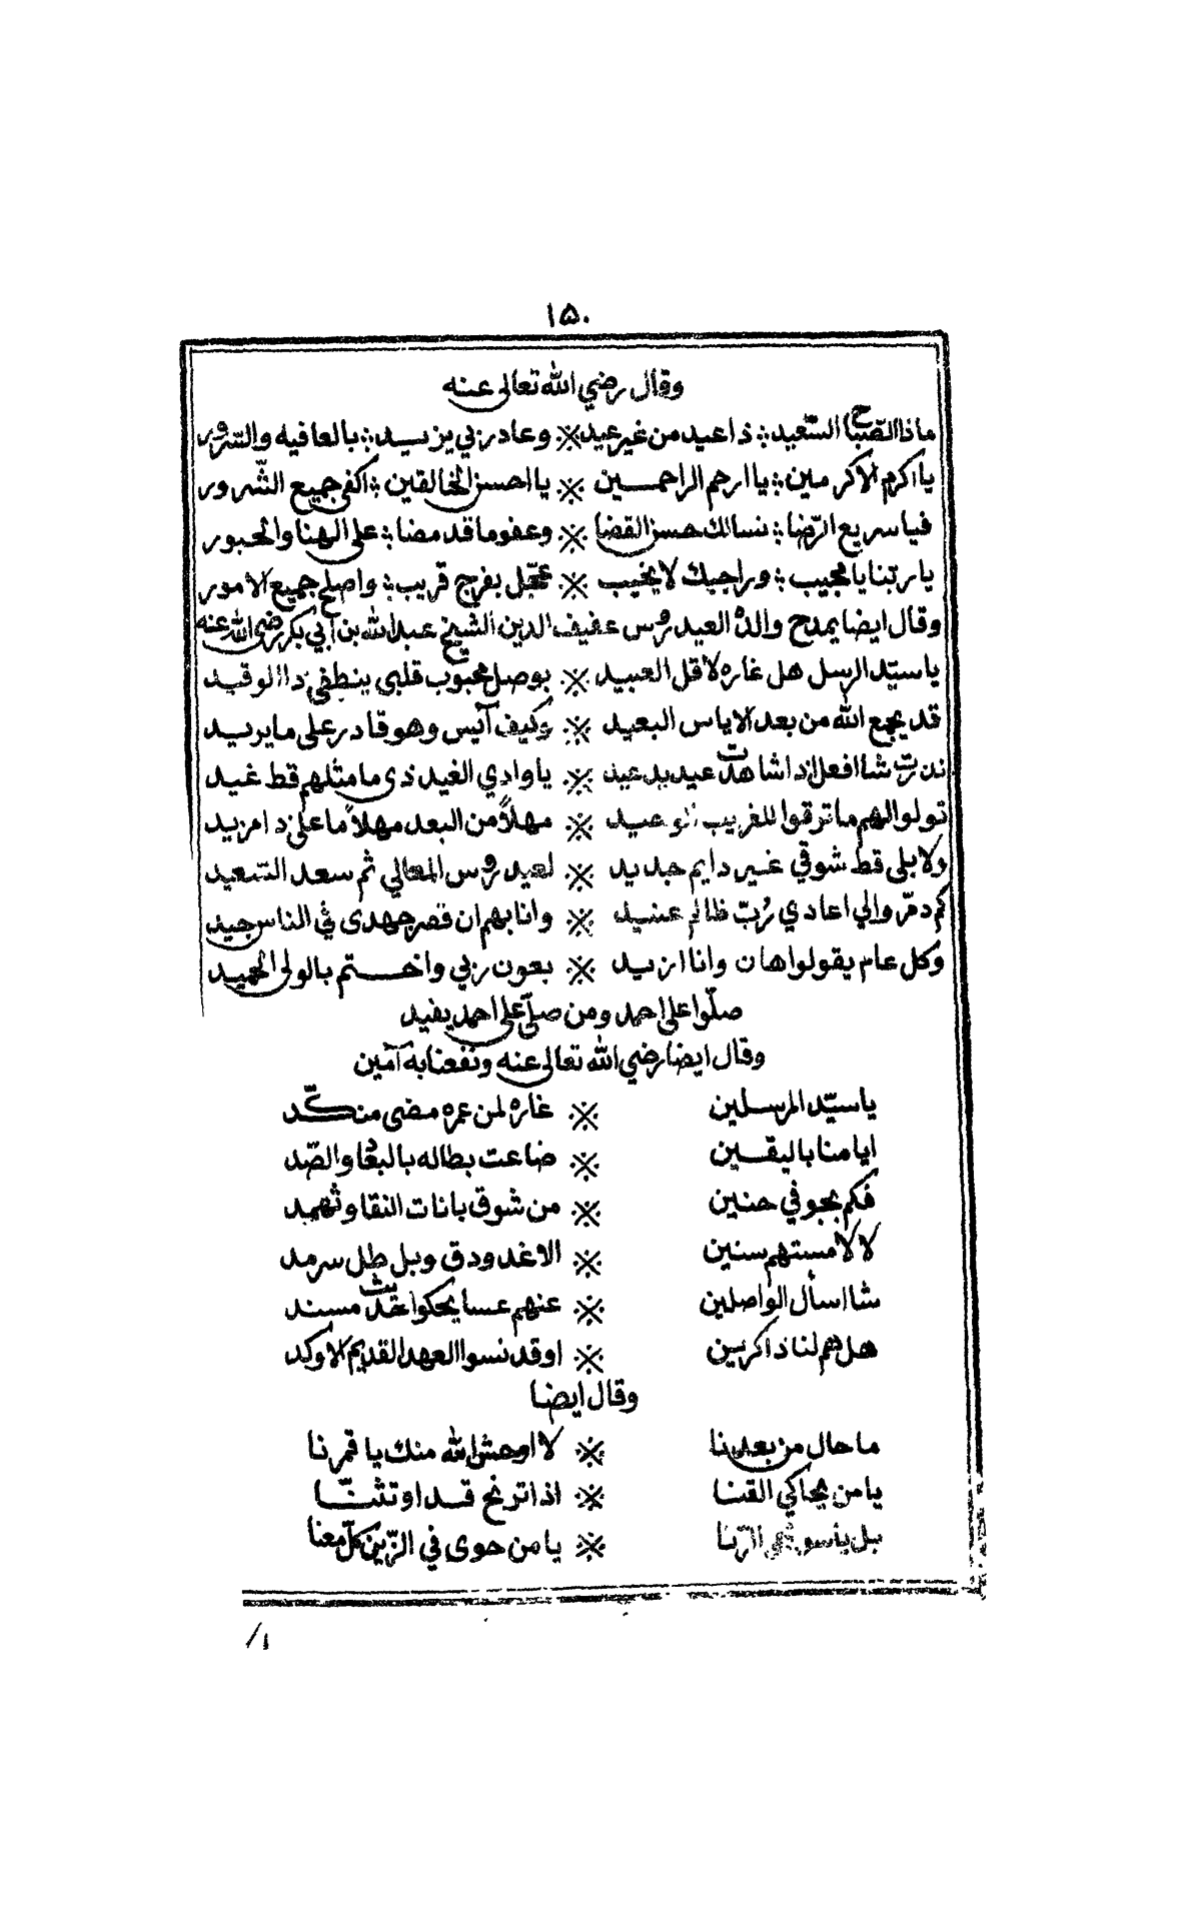 ١٥٠
وقال رضي الله تعالى عنه
ماذا الصباح السعيد ؞ ذا عيد من غير عيد ※ وعاد ربي يزيد ؞ بالعافيه والسرور
يا اكرم الاكرمين ؞ يا ارحم الراحمين ※ يا احسن الخالقين ؞ اكفي جميع الشرور
فيا سريع الرضا ؞ نسالك حسن القضا ※ وعفو ما قد مضا ؞ على الهنا والحبور
يا ربنا يا مجيب ؞ وراجيك لا يخيب ※ عجّل بفرج قريب ؞ واصلح جميع الامور
وقال ايضا يمدح والده العيدروس عفيف الدين الشيخ عبد الله بن ابي بكر رضي الله عنه
يا سيّد الرسل هل غاره لاقل العبيد ※ بوصل محبوب قلبي ينطفي ذا الوقيد
قد يجمع الله من بعد الاياس البعيد ※ وكيف آيس وهو قادر على ما يريد
نذرت شا افعل اذا شاهدت عيديد عيد ※ يا وادي الغيد ذى ما مثلهم قط غيد
تولوا لهم ما ترقوا للغريب ※ مهلاً من البعد مهلاً ما على ذا مزيد
ولا بلى قط شوقي غير دايم جديد ※ لعيدروس المعالي ثم سعد السعيد
كم دمّر والي اعادي رُبّ ظالم عنيد ※ وانا بهم ان قصر جهدى في الناس جيد
وكل عام يقولوا هان وانا ازيد ※ بعون ربي واختم بالولى الحميد
صلّوا على احمد ومن صلّى على احمد يفيد
وقال ايضا رضي الله تعالى عنه ونفعنا به آمين
يا سيّد المرسلين ※ غاره لمن عمره مضى منكّد
ايامنا باليقين ※ ضاعت بطاله بالبعاد والصّد
فكم بجوفي حنين ※ من شوق بانات النقا وثهمد
لا لا مستهم سنين ※ الا غدودق وبل طل سرمد
شا اسأل الواصلين ※ عنهم عسا يحكوا حديث مسند
هل هم لنا ذاكرين ※ او قد نسوا العهد القديم الاوكد
وقال ايضا
ما حال من بعدنا ※ لا اوحش الله منك يا قمرنا
يا من يحاكي القنا ※ اذا ترنح قد او تثنّا
بل ※ يا من حوى في الزّين كل معنا